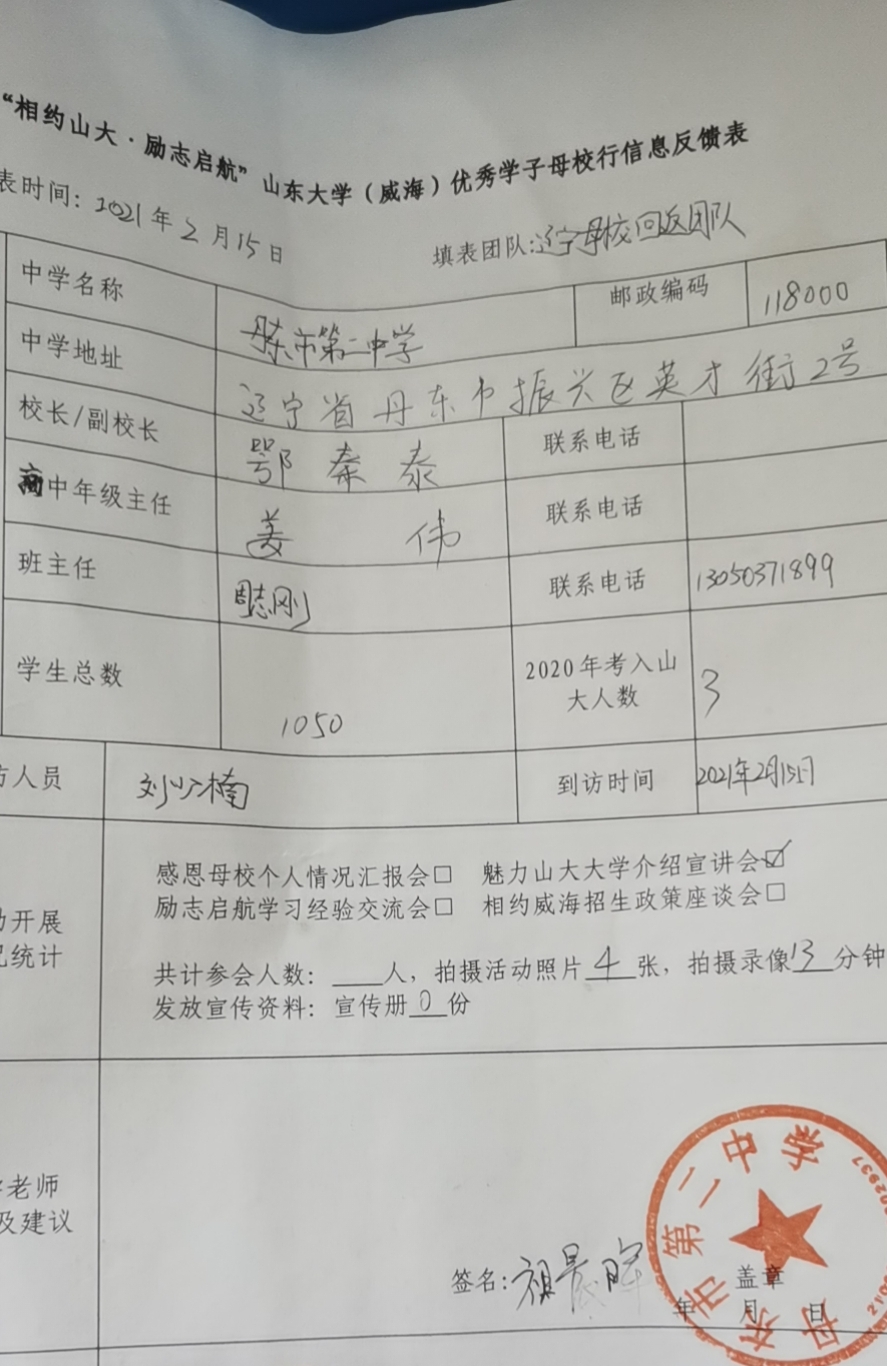 “相约山大·励志启航”山东大学（威海）优秀学子母校行信息反馈表
表时间：2021年2月15日 填表团队：辽宁母校回返团队
中学名称 丹东市第二中学 邮政编码 118000
中学地址 辽宁省丹东市振兴区英才街2号
校长/副校长 鄂秦泰 联系电话
高中年级主任 姜伟 联系电话
班主任 周志刚 联系电话 13050371899
学生总数 1050 2020年考入山
大人数 3
访人员 刘 楠 到访时间 2021年2月15日
感恩母校个人情况汇报会□ 魅力山大大学介绍宣讲会☑
励志启航学习经验交流会□ 相约威海招生政策座谈会□
动开展
况统计
共计参会人数：___人，拍摄活动照片4张，拍摄录像13分钟
发放宣传资料：宣传册0份
老师
及建议
签名： 盖章
年 月 日
丹东市第二中学